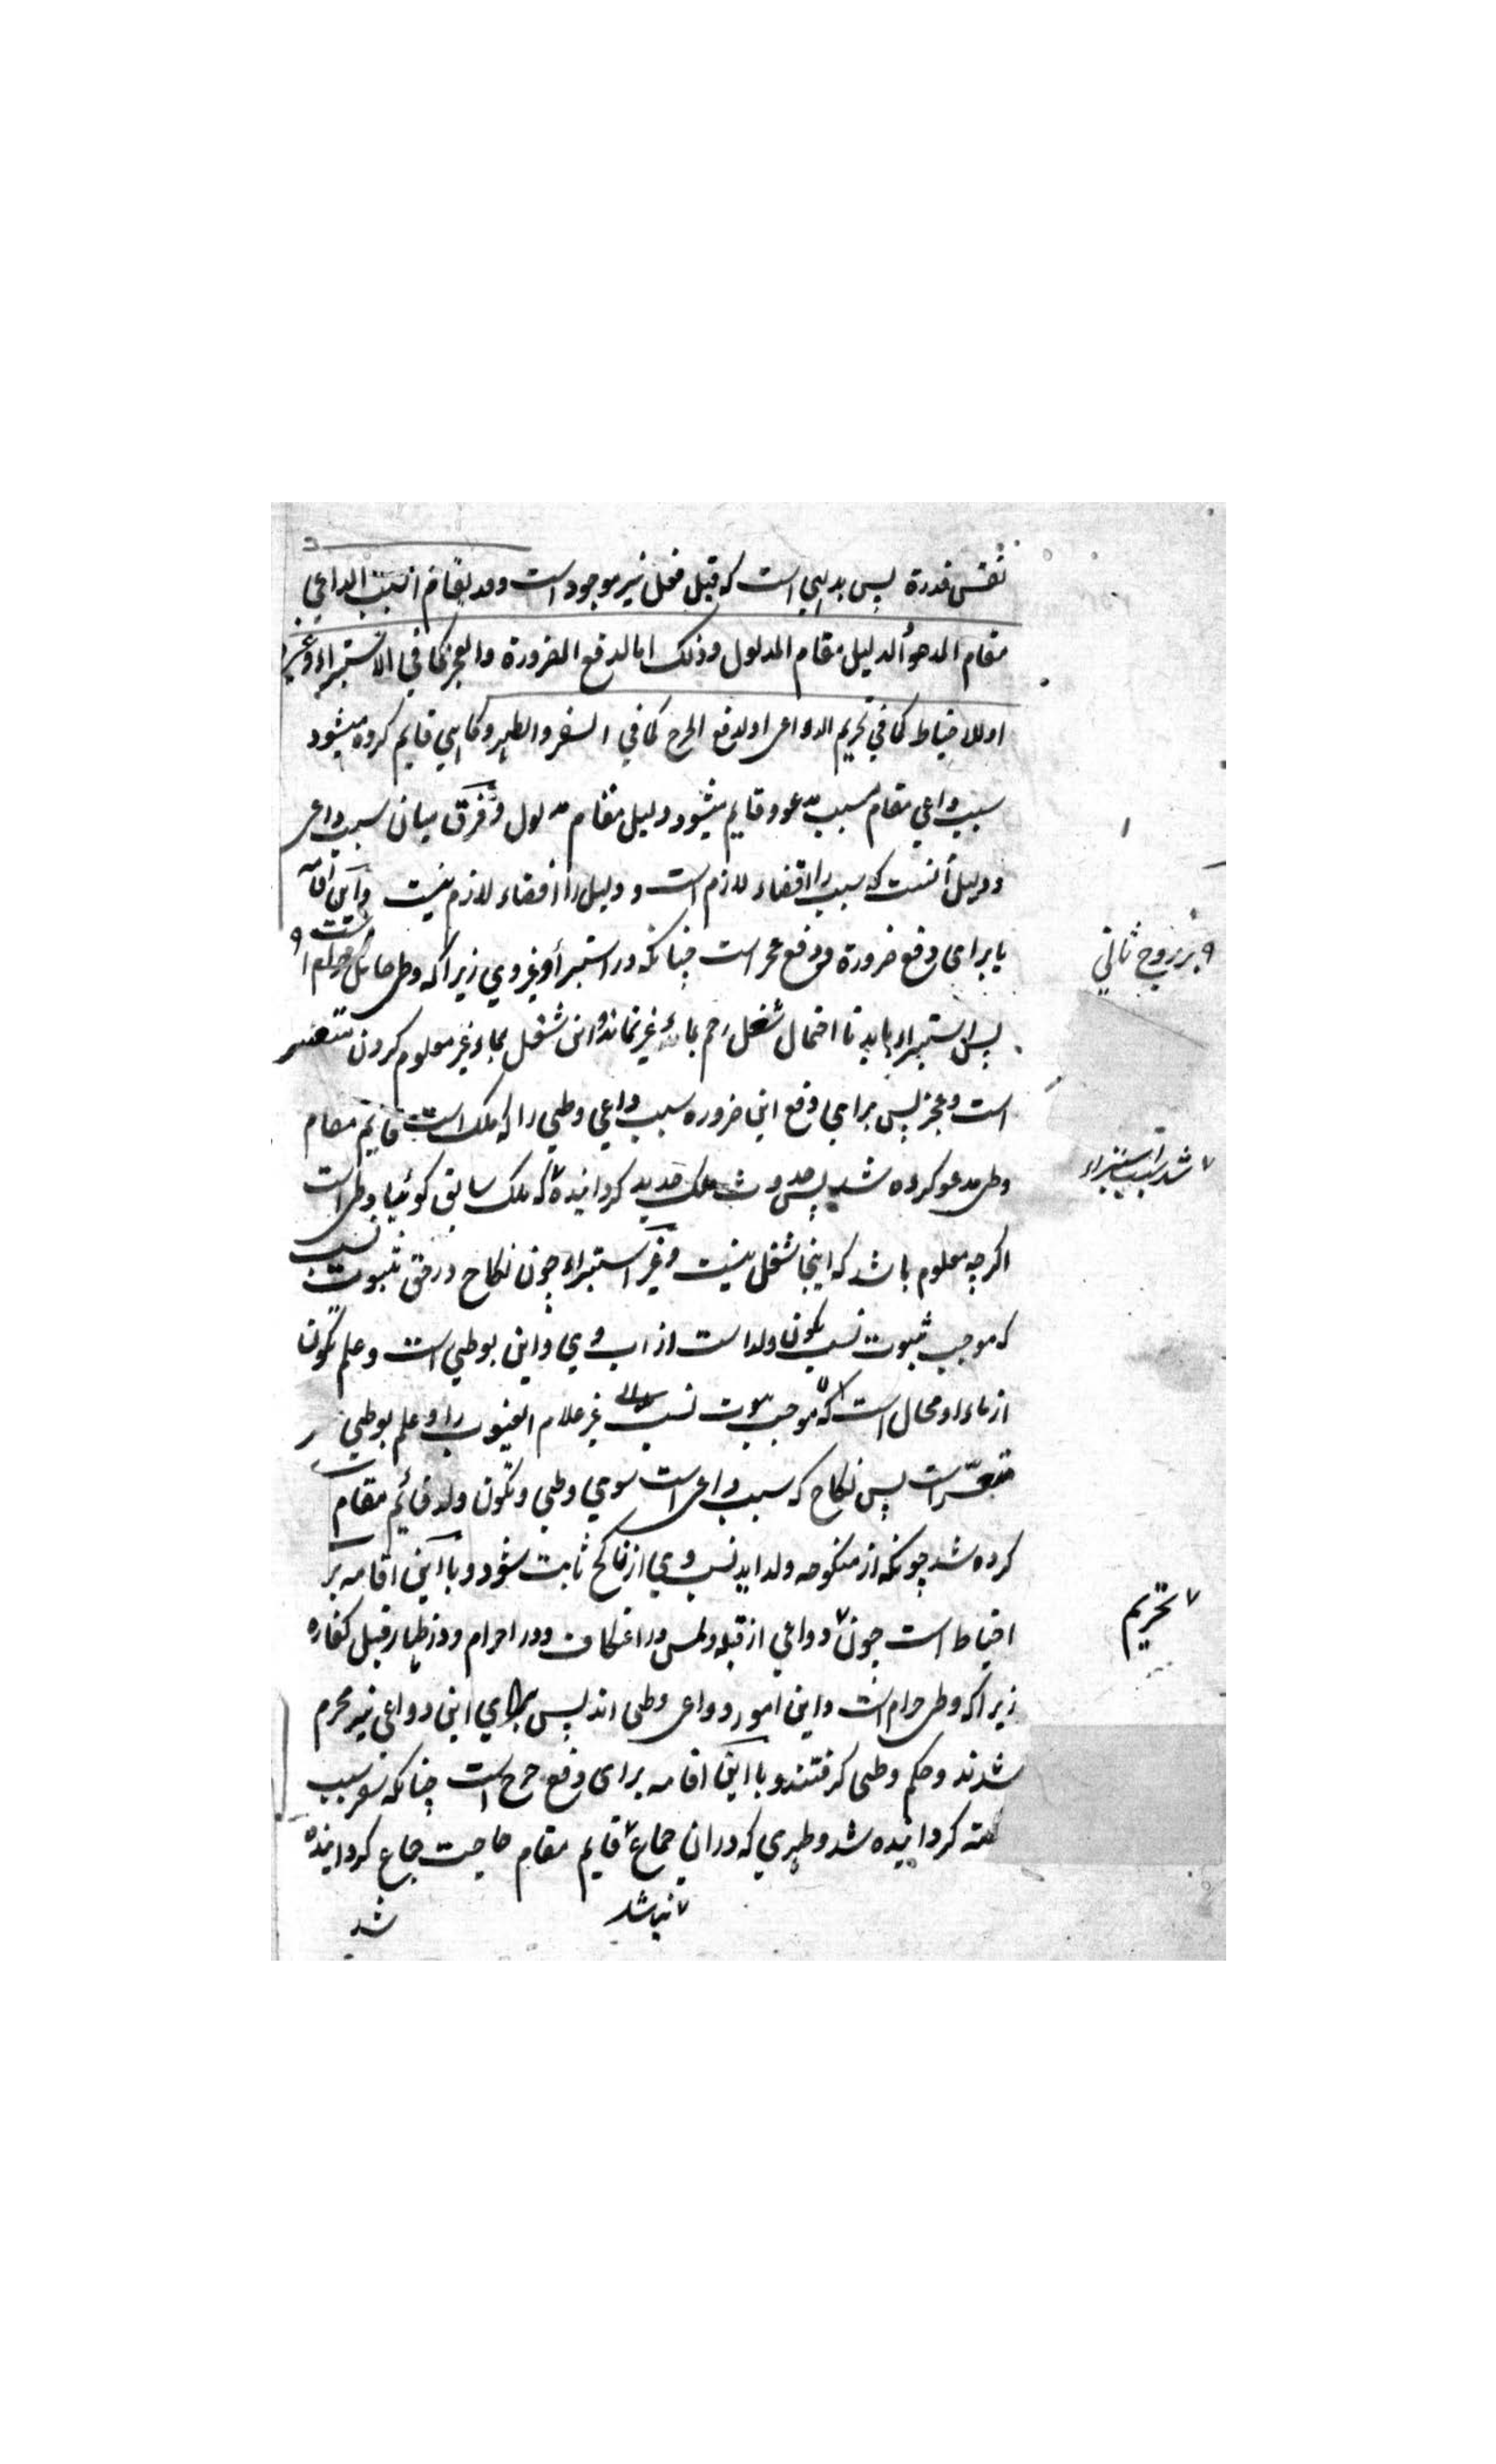 نفس قدرة پس بدیهی است که قبل فعل نیز موجود است وقد یقام السبب الداعی
مقام المدعو والدلیل مقام المدلول وذلک اما لدفع الضرورة والعجز کما فی الاستبراء وغیره
او للاحتیاط کما فی تحریم الدواعی او لدفع الحرج کما فی السفر والطهر وکاهی قایم کرده میشود
سبب داعی مقام سبب مدعو وقایم میشود دلیل مقام مدلول وفرق میان سبب داعی
ودلیل آنست که سبب را افضاء لازم است ودلیل را افضاء لازم نیست واین اقامه
یا برای دفع ضرورة ودفع عجز است چنانکه در استبرأ وغیر وی زیراکه وطی حامل حرام است
۹ بر زوج ثانی
پس استبراء باید تا احتمال شغل رحم بماء غیر نماند واین شغل بماء غیر معلوم کردن متعسر
است وعجز پس برای دفع این ضروره سبب داعی وطی را که ملک است قایم مقام
وطی مدعو کرده شد پس حدوث ملک جدید کردانیده که ملک سابق کوئیا وطی است
۷ شد سبب استبراء
اکرچه معلوم باشد که اینجا شغل نیست وغیر استبراء چون نکاح در حق ثبوت نسب
که موجب ثبوت نسب تکون ولد است از اب وی واین بوطی است وعلم تکون
از ماء او محال است که موجب ثبوت نسب غیر علام الغیوب را وعلم بوطی
متعسر است پس نکاح که سبب داعی است سوی وطی وتکون ولد قائم مقام
کرده شد چونکه از منکوحه ولد اید نسب وی از ناکح ثابت شود ویا این اقامه بر
احتیاط است چون ۷ دواعی از قبله ولمس در اعتکاف ودر احرام ودر ظهار قبل کفاره
۷ تحریم
زیراکه وطی حرام است واین امور دواعی وطی اند پس برای این دواعی نیز محرم
شدند وحکم وطی کرفتند ویا این اقامه برای دفع حرج است چنانکه سفر سبب
کردانیده شد وطهری که دران جماع ۷ قایم مقام حاجت جماع کردانیده
۷ نباشد
شد